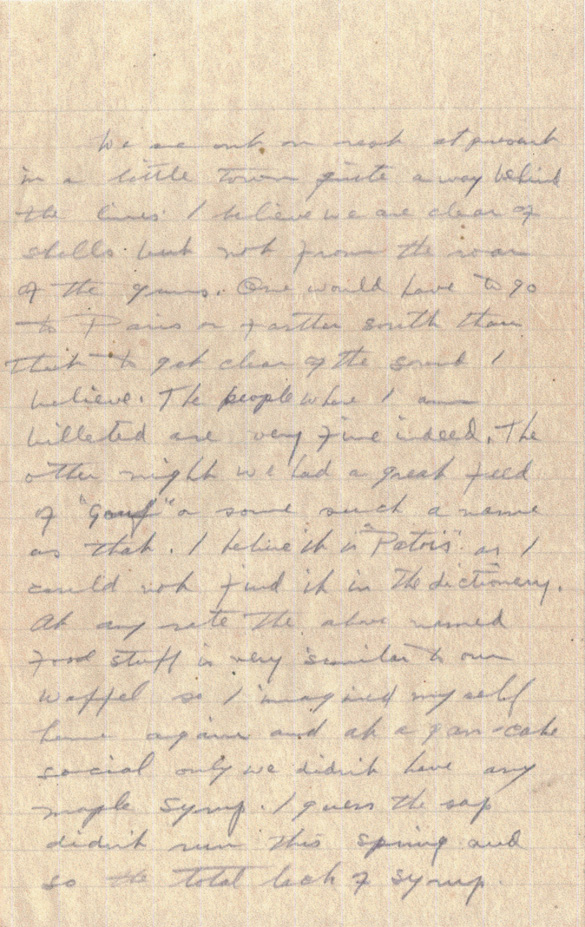 We are out on rest at present
in a little town quite a way behind
the lines. I believe we are clear of
shells but not from the roar
of the guns. One would have to go
to Paris or farther south than
that to get clear of the sound I
believe. The people where I am
billeted are very fine indeed. The
other night we had a great feed
of "Gouf" or some such a name
as that. I believe it is "Patois" as I
could not find it in the dictionery.
At any rate the above named
food stuff is very similar to our
waffel so I imagined myself
home again and at a pan-cake
social only we didn't have any
maple syrup. I guess the sap
didn't run this spring and
so the total lack of syrup.